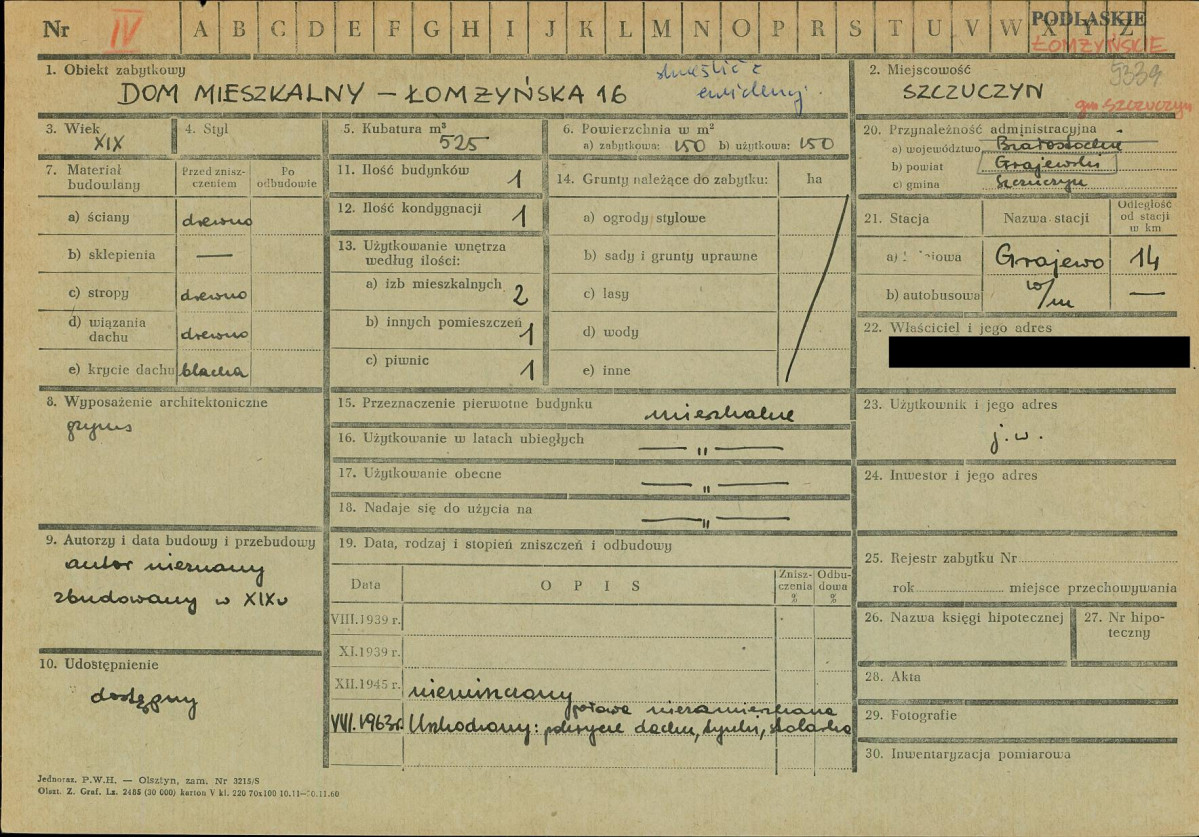 Nr IV A B C D E F G H I J K L M N O P R S T U V W X Y Z PODLASKIE
ŁOMŻYŃSKIE
1. Obiekt zabytkowy
DOM MIESZKALNY – ŁOMŻYŃSKA 16
skreślić z
2. Miejscowość
SZCZUCZYN
5339
gm. SZCZUCZYN
3. Wiek
XIX
4. Styl
5. Kubatura m³
525
6. Powierzchnia w m²
a) zabytkowa: 150 b) użytkowa: 150
7. Materiał budowlany
Przed znisz-
czeniem
Po
odbudowie
a) ściany drewno
b) sklepienia —
c) stropy drewno
d) wiązania
dachu drewno
e) krycie dachu blacha
8. Wyposażenie architektoniczne
gzyms
9. Autorzy i data budowy i przebudowy
autor nieznany
zbudowany w XIXw
10. Udostępnienie
dostępny
11. Ilość budynków 1
12. Ilość kondygnacji 1
13. Użytkowanie wnętrza
według ilości:
a) izb mieszkalnych 2
b) innych pomieszczeń 1
c) piwnic 1
14. Grunty należące do zabytku: ha
a) ogrody stylowe
b) sady i grunty uprawne
c) lasy
d) wody
e) inne
15. Przeznaczenie pierwotne budynku mieszkalne
16. Użytkowanie w latach ubiegłych — " —
17. Użytkowanie obecne — " —
18. Nadaje się do użycia na — " —
19. Data, rodzaj i stopień zniszczeń i odbudowy
Data
O P I S
Znisz-
czenia
%
Odbu-
dowa
%
VIII.1939 r.
XI.1939 r.
XII.1945 r. niezniszczony
połowa niezamieszkana
VIII.1963r. Uszkodzony: pokrycie dachu, tynki, stolarka
20. Przynależność administracyjna
a) województwo Białostockie
b) powiat Grajewski
c) gmina Szczuczyn
21. Stacja
Nazwa stacji
Odległość
od stacji
w km
Grajewo 14
b) autobusowa w/m —
22. Właściciel i jego adres
23. Użytkownik i jego adres
j.w.
24. Inwestor i jego adres
25. Rejestr zabytku Nr
rok miejsce przechowywania
26. Nazwa księgi hipotecznej
27. Nr hipo-
teczny
28. Akta
29. Fotografie
30. Inwentaryzacja pomiarowa
Jednoraz. P.W.H. — Olsztyn, zam. Nr 3215/S
Olszt. Z. Graf. Lz. 2485 (30 000) karton V kl. 220 70x100 10.11—30.11.60